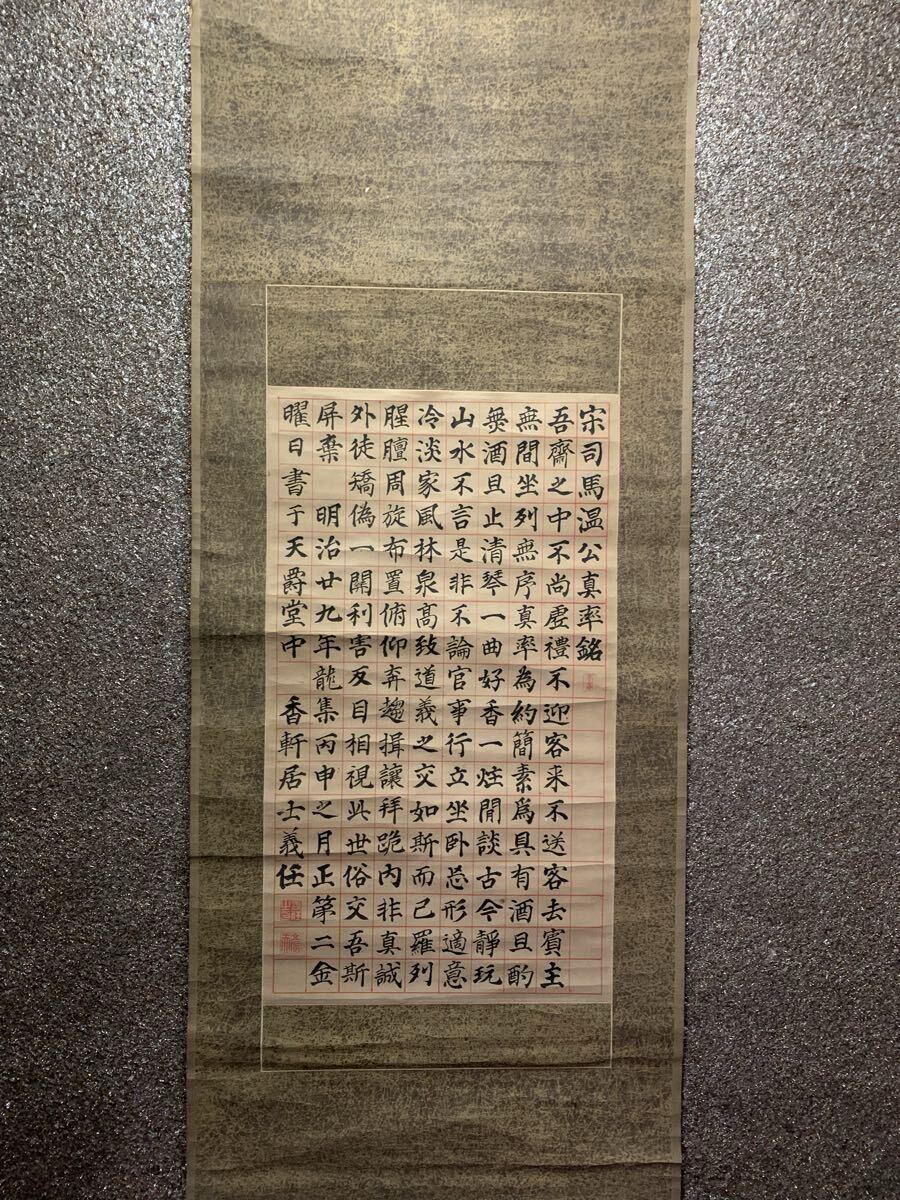 宗司馬温公真率銘
吾齋之中不尚虚禮不迎客来不送客去賓主
無間坐列無序真率為約簡素為具有酒且酌
無酒且止清琴一曲好香一炷閒談古今靜玩
山水不言是非不論官事行立坐卧忘形適意
冷淡家風林泉髙致道義之交如斯而已羅列
腥膻周旋布置俯仰奔趨揖讓拜跪内非真誠
外徒矯偽一関利害反目相視此世俗交吾斯
屏棄 明治廿九年龍集丙申之月正第二金
曜日書于天爵堂中 香軒居士義任